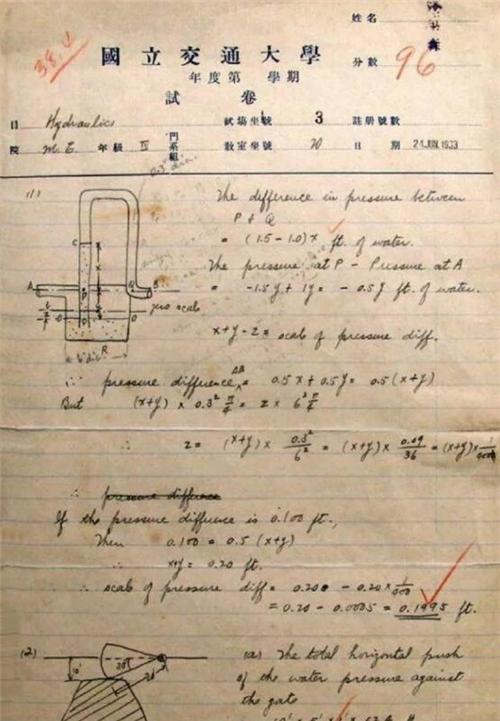 姓名
國立交通大學
分數 96
38.4
年度第 學期
試卷
目 Hydraulics 試場坐號 3 註冊號數
院 M.E. 年級 IV 門系組 教室坐號 20 日期 24 JUN 1933
0.3" dia.
(1)
The difference in pressure between
P & Q
= (1.5 - 1.0) x ft. of water.
The pressure at P - Pressure at A
= -1.5y + 1y = -0.5y ft. of water.
C
A B
zero scale
R
6" dia.
x+y-z = scale of pressure diff.
∴ pressure difference AB = 0.5x + 0.5y = 0.5(x+y)
But (x+y) × 0.3² π/4 = z × 6² π/4
∴ z = (x+y) × 0.3²/6² = (x+y) × 0.09/36 = (x+y) × 1/400
∴ pressure difference
If the pressure difference is 0.100 ft.,
Then 0.100 = 0.5 (x+y)
∴ x+y = 0.20 ft.
∴ scale of pressure diff = 0.200 - 0.20 × 1/400
= 0.20 - 0.0005 = 0.1995 ft.
(2)
10'
30°
20'
(a) The total horizontal push
of the water pressure against
the gate